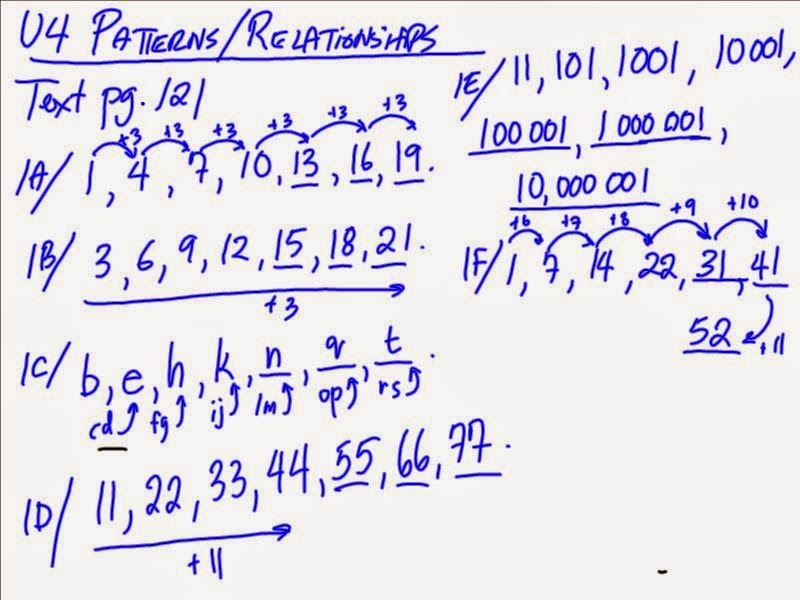 U4 PATTERNS/RELATIONSHIPS
Text pg. 121
+3 +3 +3 +3 +3 +3
1A/ 1, 4, 7, 10, 13, 16, 19.
1B/ 3, 6, 9, 12, 15, 18, 21.
+3
1C/ b, e, h, k, n, q, t.
cd fg ij lm op rs
1D/ 11, 22, 33, 44, 55, 66, 77.
+11
1E/ 11, 101, 1001, 10 001,
100 001, 1 000 001,
10,000 001
+6 +7 +8 +9 +10
1F/ 1, 7, 14, 22, 31, 41
52 +11